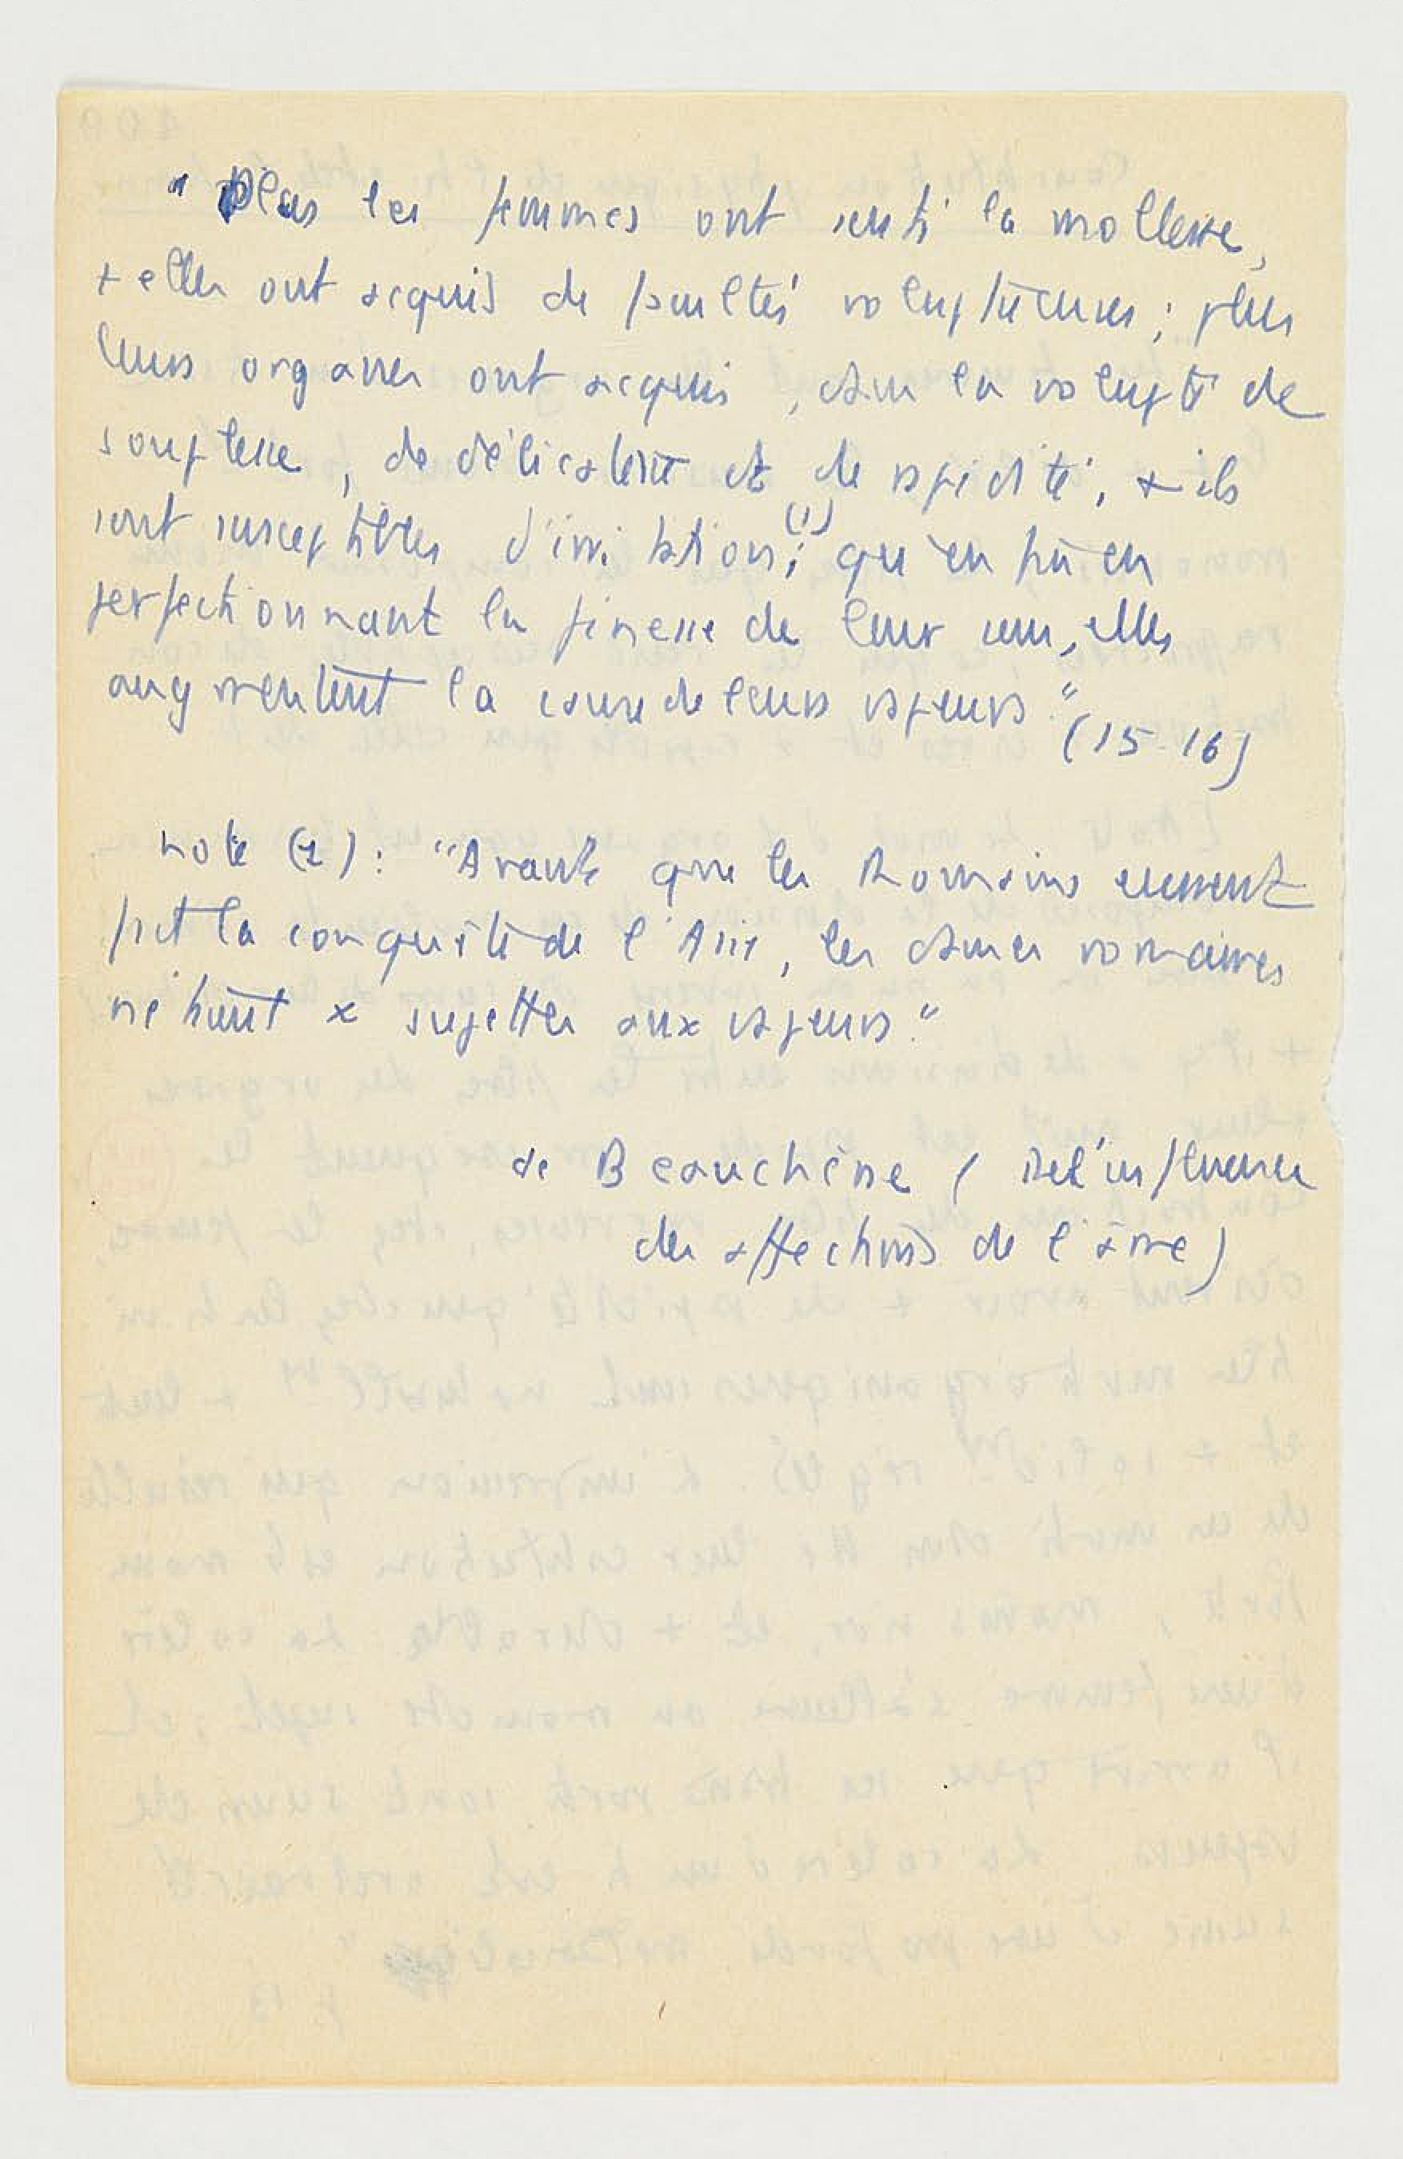 " Plus les femmes ont senti la mollesse,
+ elles ont acquis de facultés voluptueuses ; plus
leurs organes ont acquis, dans la volupté de
souplesse, de délicatesse et de rapidité, + ils
sont susceptibles d'irritation ; (1) qu'en
perfectionnant la finesse de leur sens, elles
augmentent la cause de leurs vapeurs." (15-16)
note (1) : "Avant que les Romains eussent
fait la conquête de l'Asie, les dames romaines
n'étaient x sujettes aux vapeurs."
de Beauchêne ( De l'influence
des affections de l'âme)